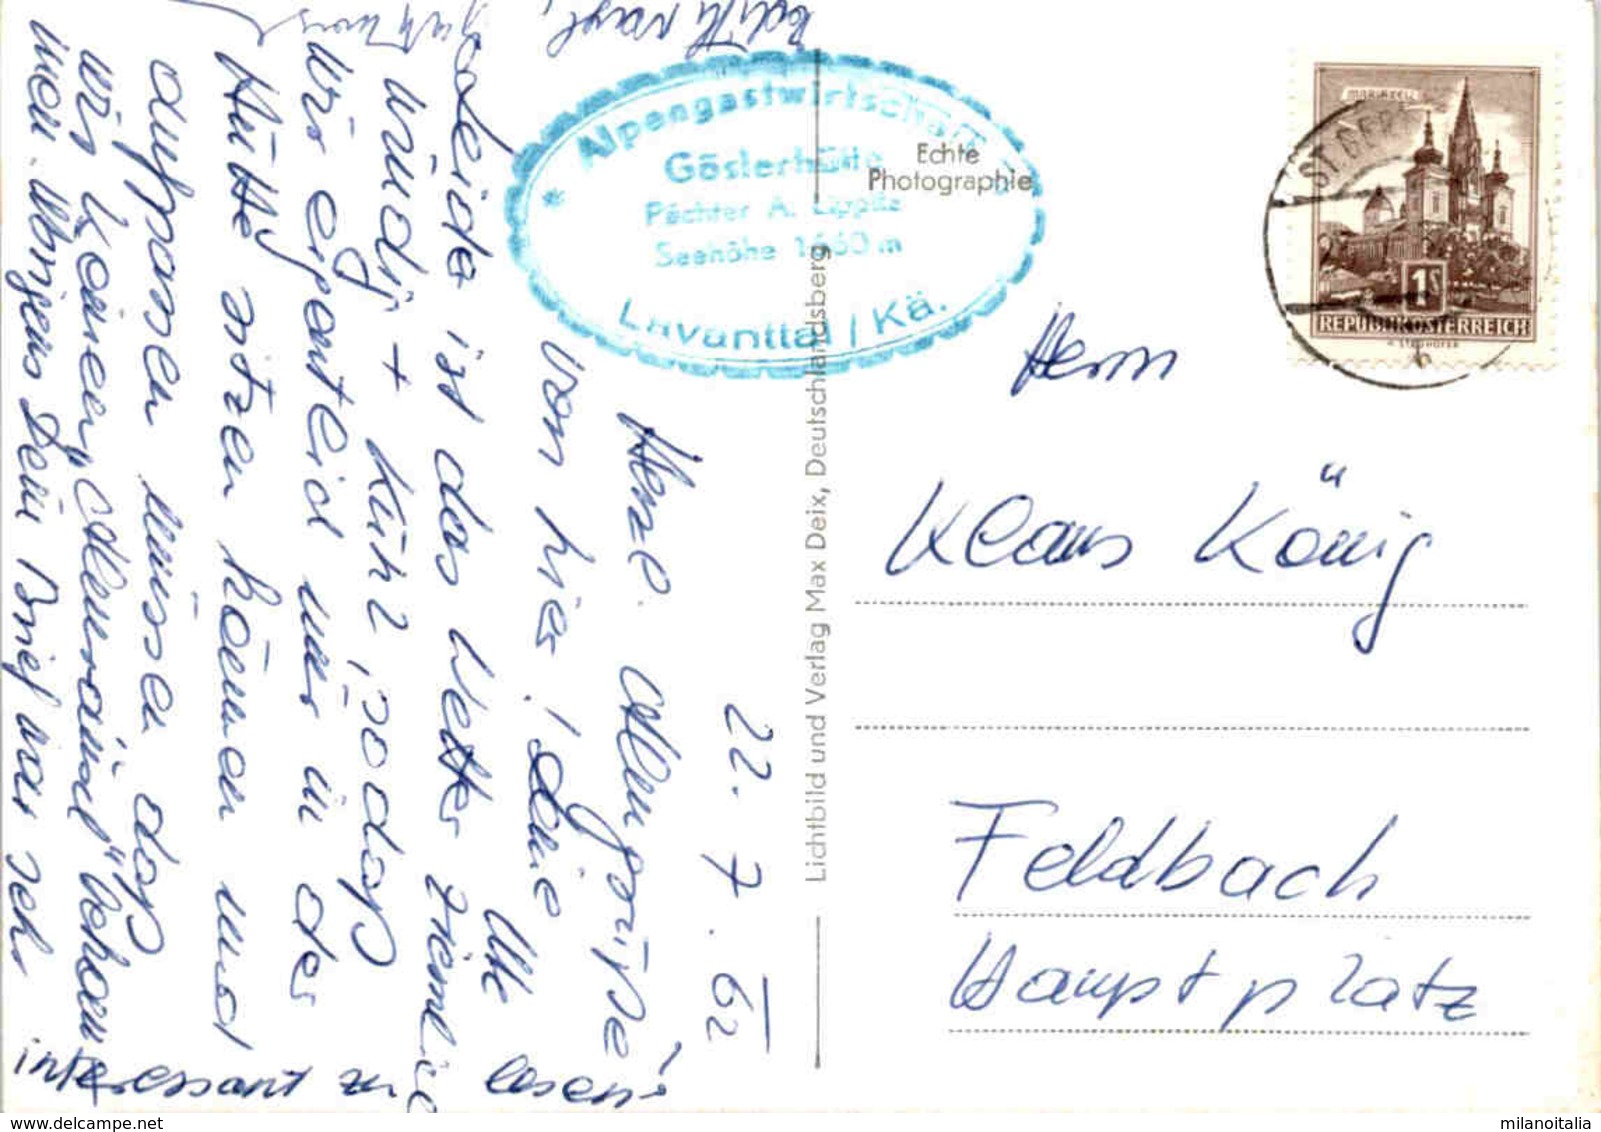 22. 7. 62
Herzl. Almgrüße
von hier! Deine
Ute
Leider ist das Wetter ziemlich
windig + kühl, sodaß
wir expart eid nur in der
Hütte sitzen können und
aufpassen müssen daß
wir keinen „Almrausch“ bekommen.
Übrigens Dein Brief war sehr
interessant zu lesen!
Edith
* Alpengastwirtschaft *
Göslerhütte
Pächter A. Lippitz
Seehöhe 1660 m
Lavanttal / Kä.
Echte
Photographie
Lichtbild und Verlag Max Deix, Deutschlandsberg
MARIAZELL
1 S
REPUBLIK ÖSTERREICH
Herrn
Klaus König
Feldbach
Hauptplatz
www.delcampe.net
milanoitalia